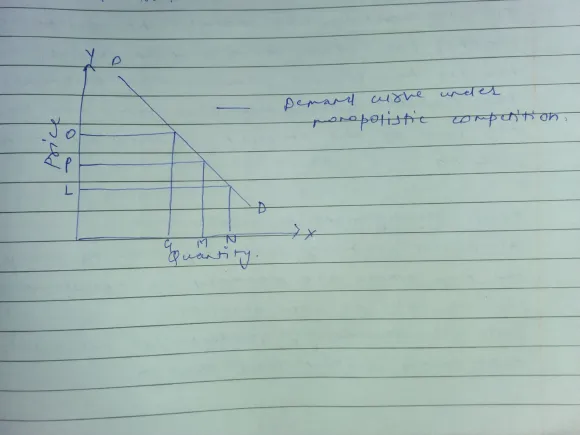 Y
D
Demand curve under
monopolistic competition.
Price
O
P
L
D
G M N X
Quantity.